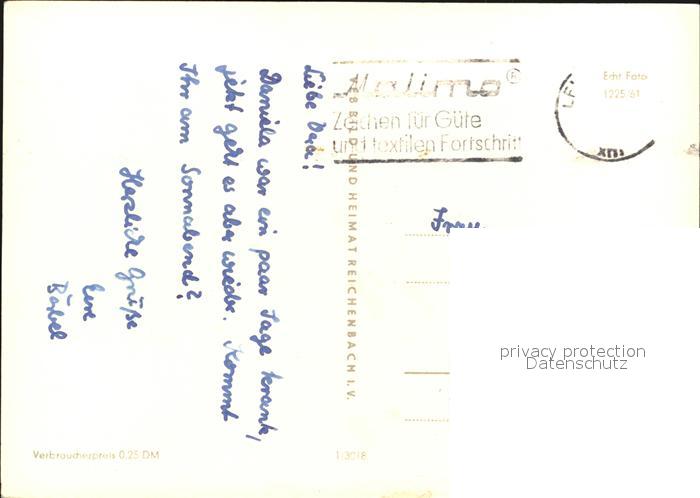 Liebe Dea!
Daniela war ein paar Tage krank,
jetzt geht es aber wieder. Kommt
Ihr am Sonnabend?
Herzliche Grüße
Eure
Bärbel
Malimo®
Zeichen für Güte
und textilen Fortschritt
Echt Foto
1225/61
VEB BILD UND HEIMAT REICHENBACH I. V.
Frau
privacy protection
Datenschutz
Verbraucherpreis 0,25 DM
1/3018